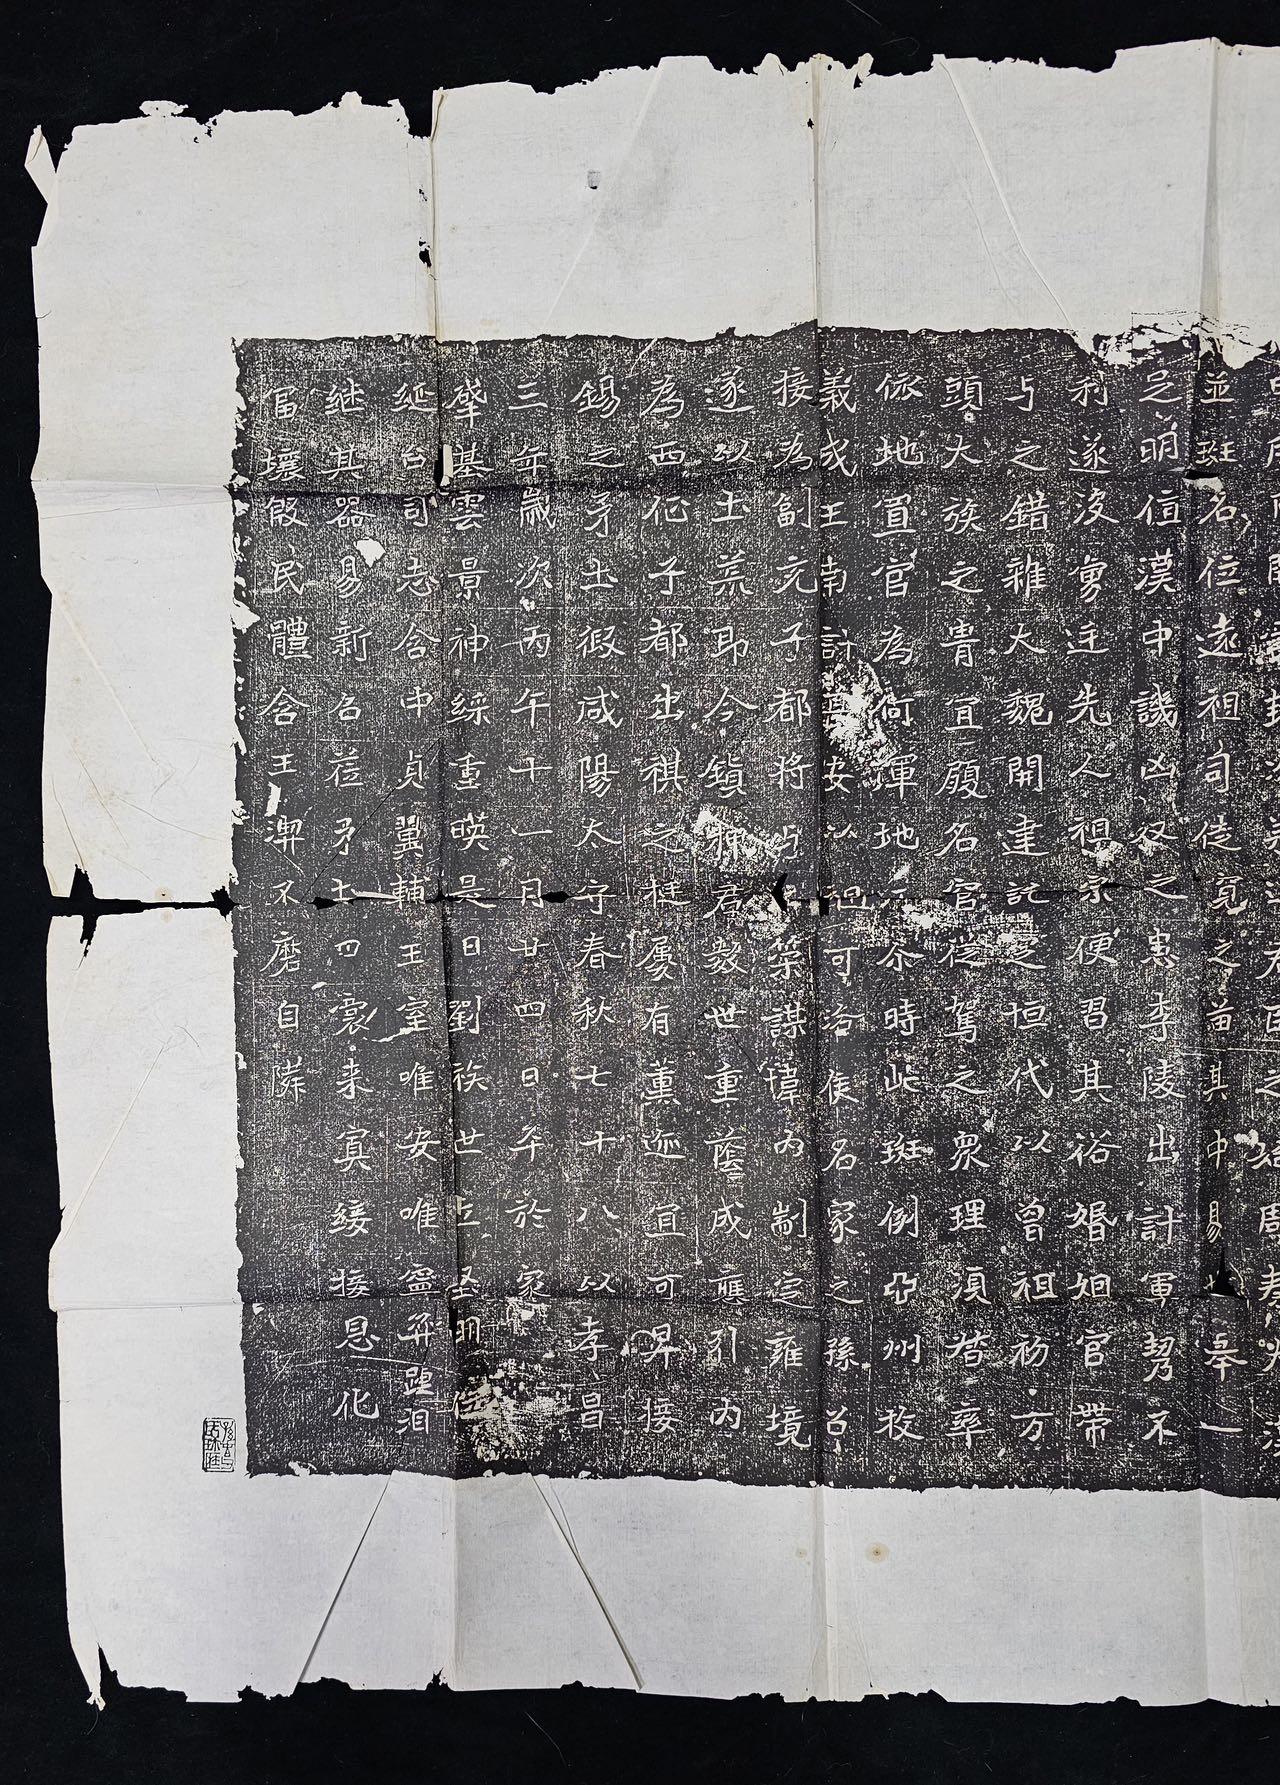 並班名位遠祖司徒寬之苗其中易世舉一
足明值漢中譏凶奴之患李陵出討軍勢不
利遂没虜廷先人祖宗便習其俗婚姻官帶
与之錯雜大魏開建託定恒代以曾祖初万
頭大族之胄宜履名官從駕之衆理須督率
依地置官為何渾地汗尒時此班例亞州牧
義成王南討安以過可洛侯名家之孫召
接為副充子都將与王策謀瑋内剬定雍境
遂以土荒即令鎮押君數世重蔭成應引内
為西征子都出祺之挺屢有薰迹宜可昇接
錫之茅土假咸陽太守春秋七十八以孝昌
三年歲次丙午十一月廿四日卒於家
肇基雲景神綵重暎是日劉族世立明
延台司志含中貞翼輔王室唯安唯寧弈踵泪
継其器易新名莅矛土四襄来賓緩接恩化
富壤假民體含王渊不磨自隣